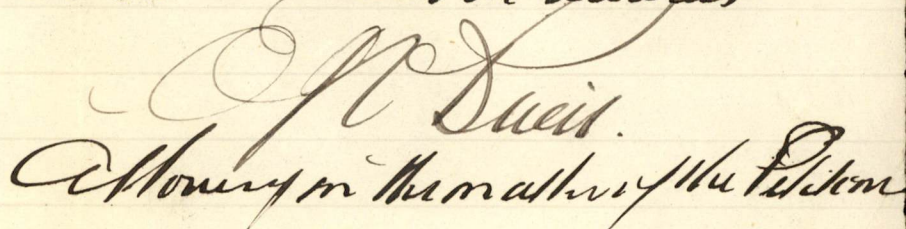 Davis.
Attorney in the matter of the Petition